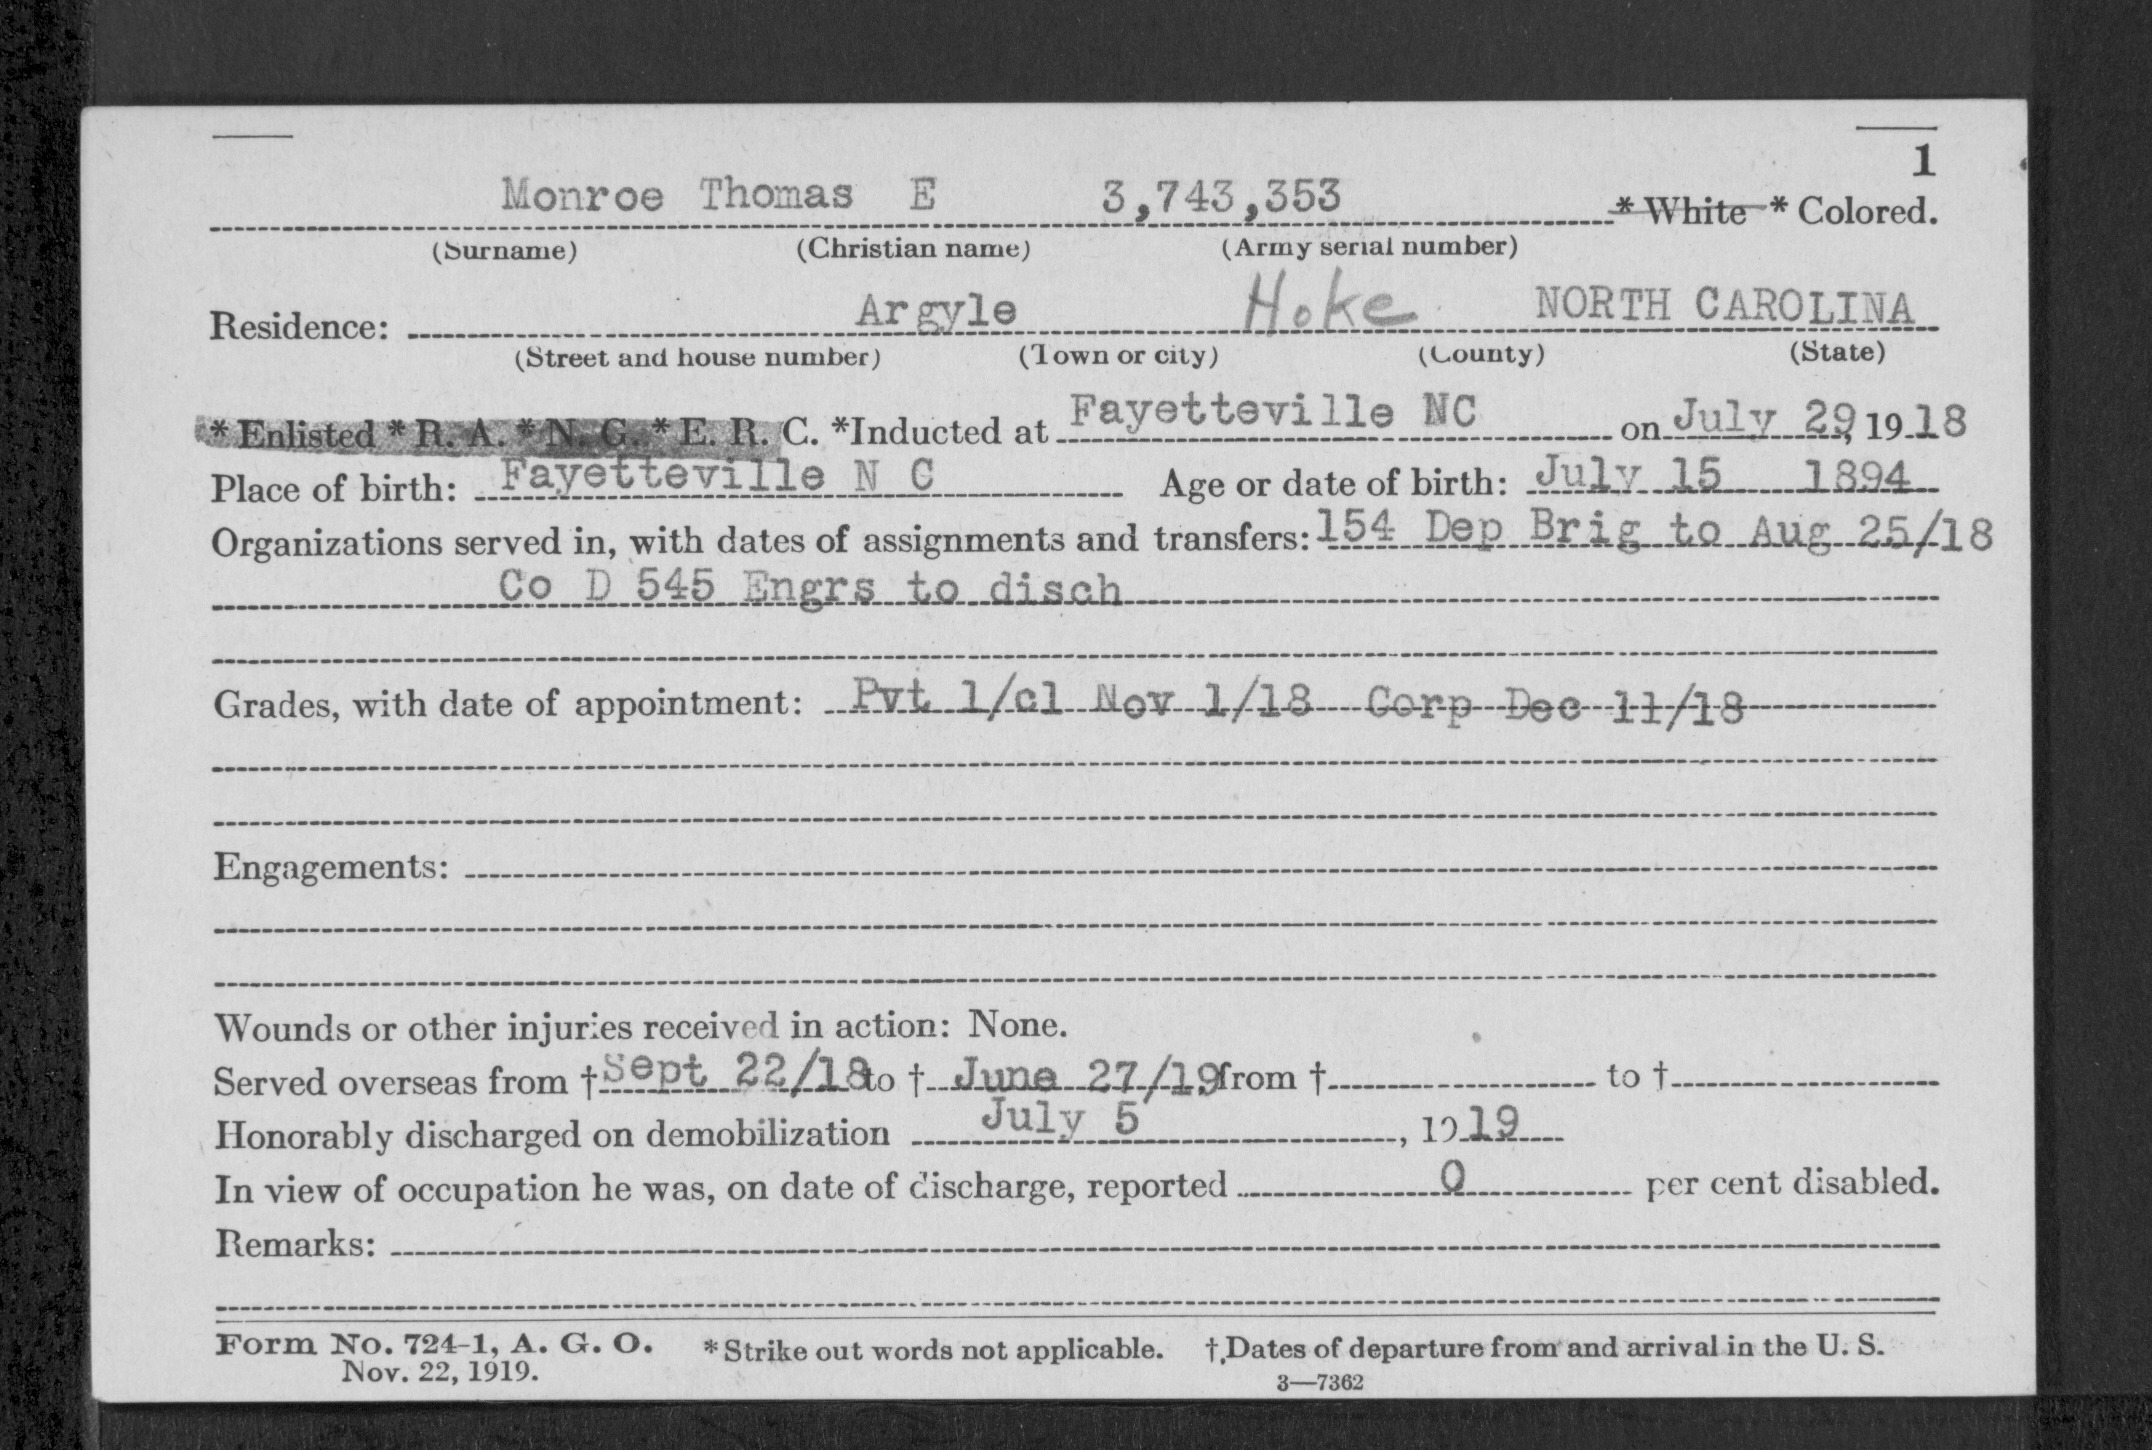 1
Monroe Thomas E 3,743,353 * White * Colored.
(Surname) (Christian name) (Army serial number)
Residence: Argyle Hoke NORTH CAROLINA
(Street and house number) (Town or city) (County) (State)
* Enlisted * R. A. * N. G. * E. R. C. *Inducted at Fayetteville NC on July 29, 1918
Place of birth: Fayetteville N C Age or date of birth: July 15 1894
Organizations served in, with dates of assignments and transfers: 154 Dep Brig to Aug 25/18
Co D 545 Engrs to disch
Grades, with date of appointment: Pvt 1/cl Nov 1/18 Corp Dec 11/18
Engagements:
Wounds or other injuries received in action: None.
Served overseas from † Sept 22/18 to † June 27/19 from † to †
Honorably discharged on demobilization July 5, 1919
In view of occupation he was, on date of discharge, reported 0 per cent disabled.
Remarks:
Form No. 724-1, A. G. O. * Strike out words not applicable. † Dates of departure from and arrival in the U. S.
Nov. 22, 1919. 3—7362